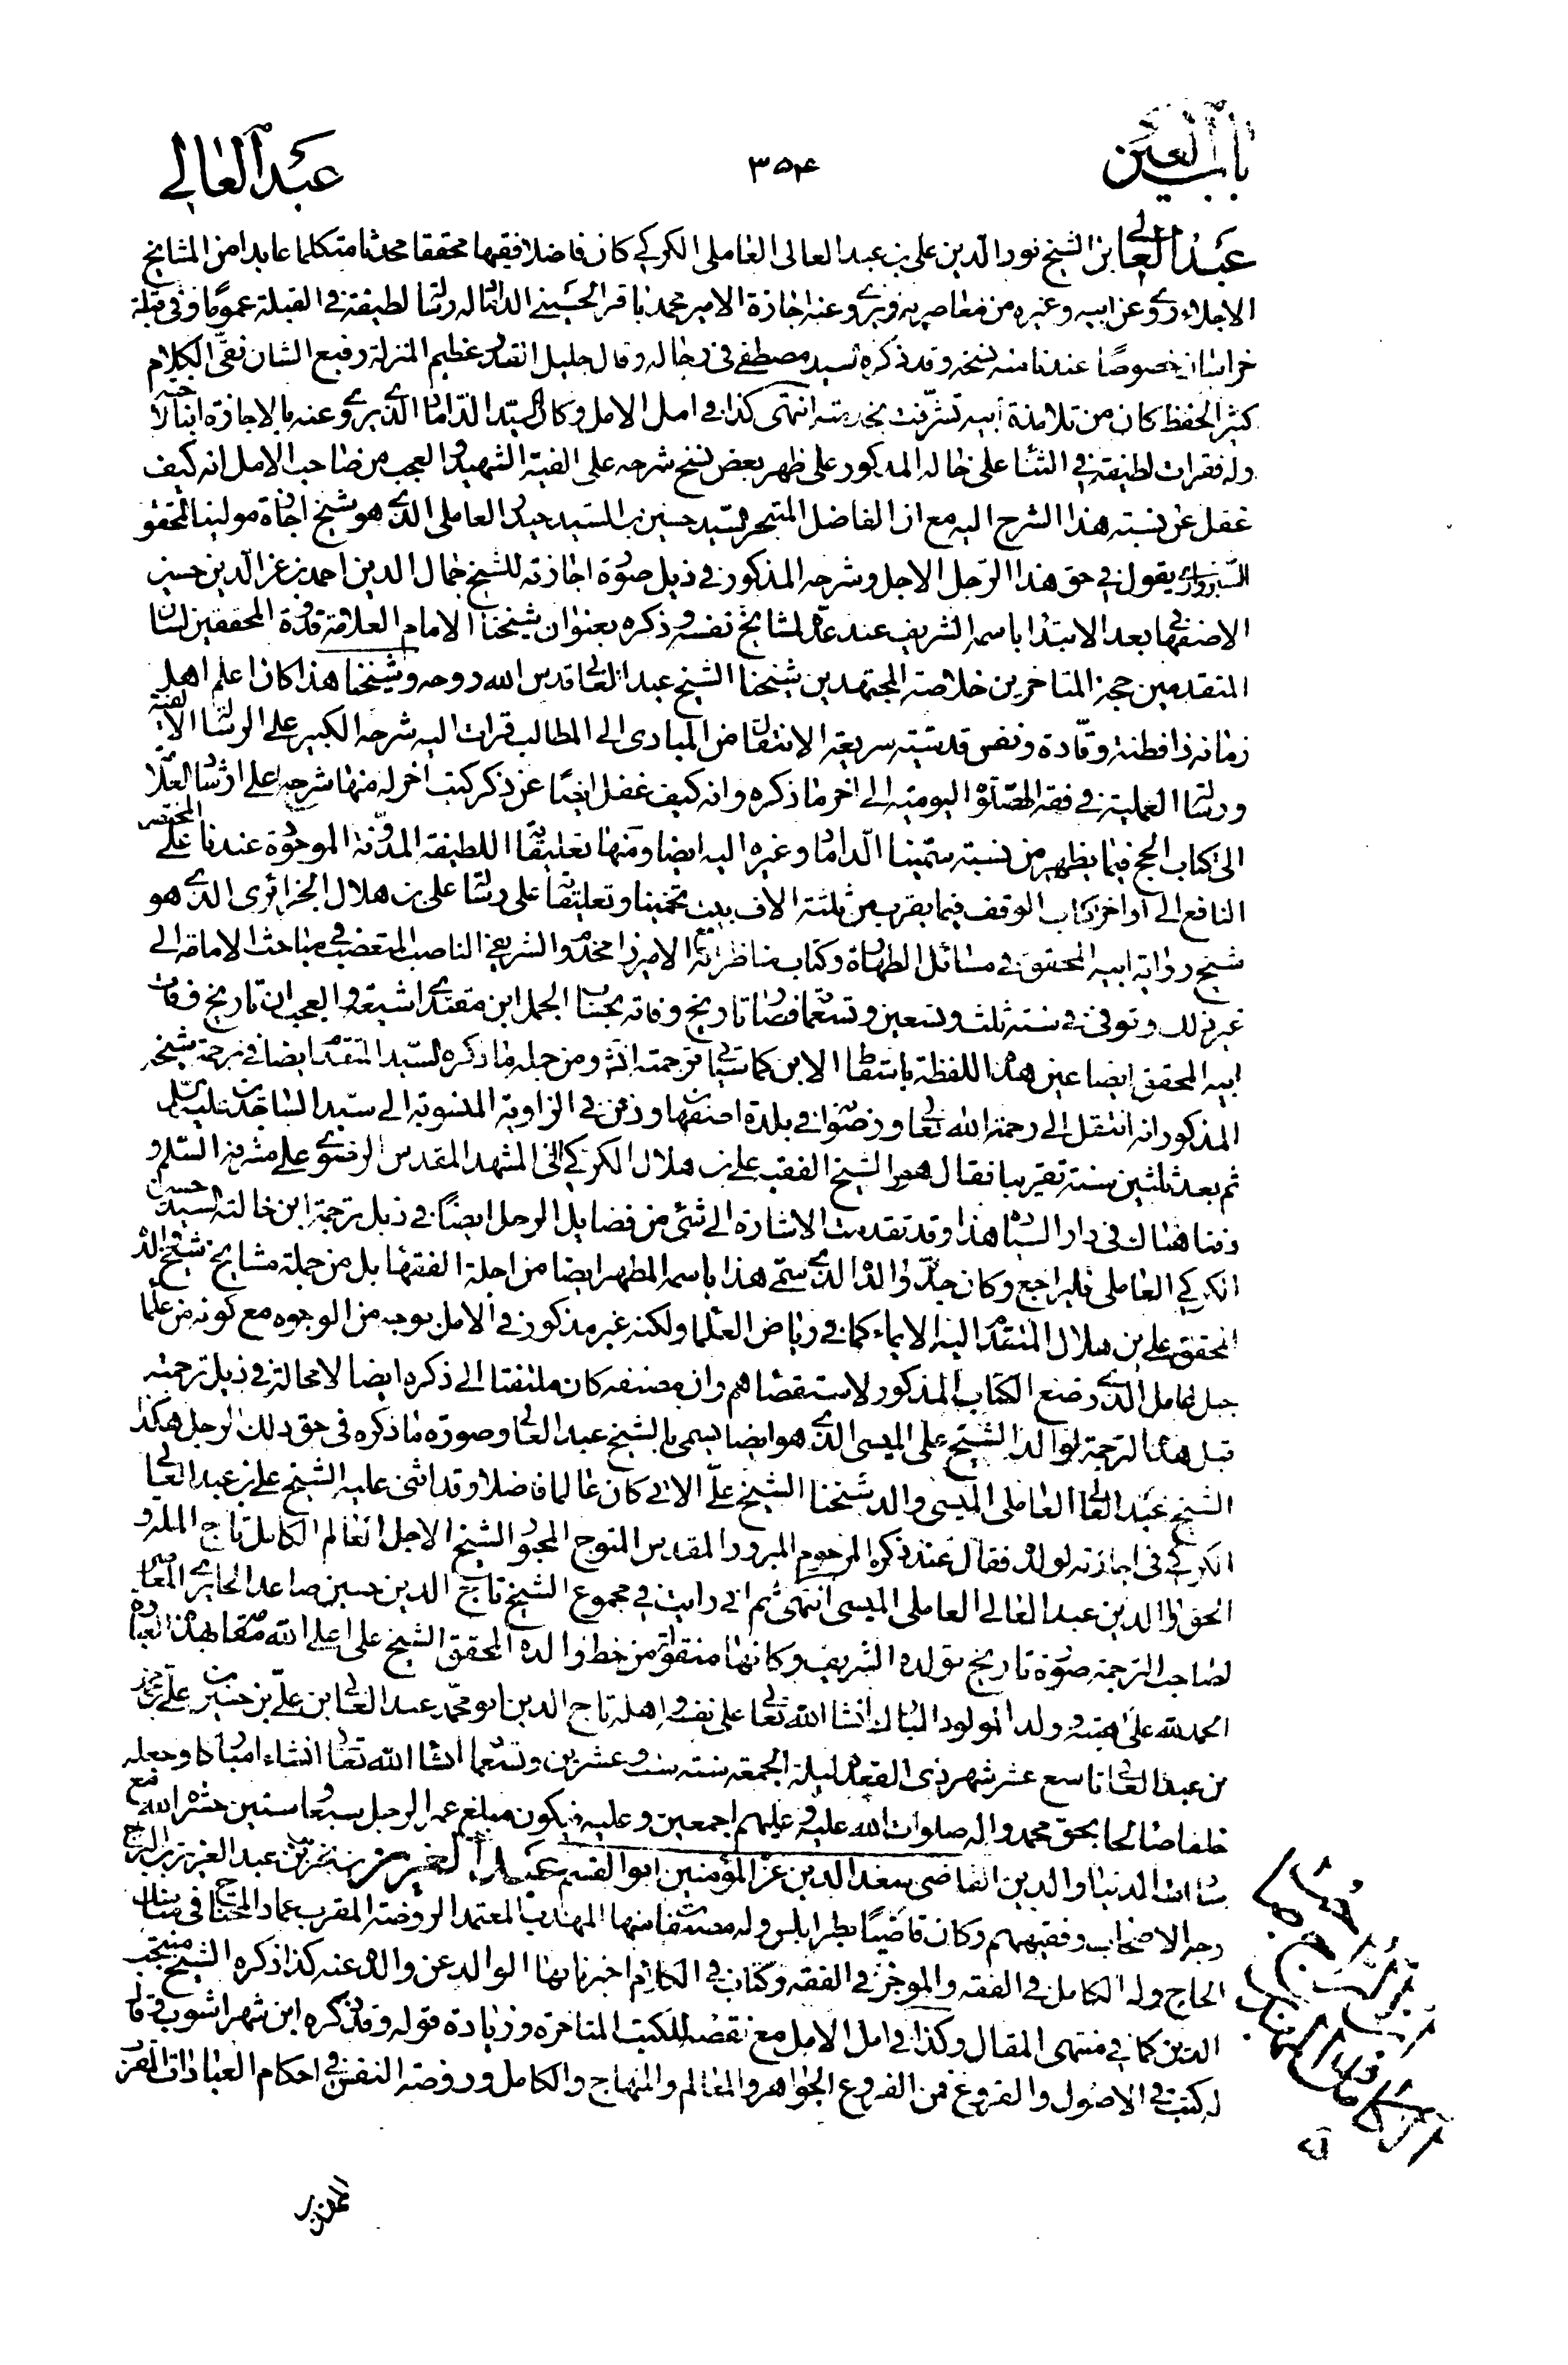 باب العين
٣٥۴
عبد العالي
عبد العالي بن الشيخ نور الدين علي بن عبد العالى العاملى الكركي كان فاضلا فقيها محققا محدثا متكلما عابدا من المشايخ
الاجلاء روى عن ابيه وغيره من معاصريه ويروى عنه اجازة الامير محمد باقر الحسينى الداماد له رسالة لطيفة في القبلة عموما وفى قبلة
خراسان خصوصًا عندنا منه نسخه وقد ذكره السيد مصطفى فى رجاله وقال جليل القدر عظيم المنزلة رفيع الشان نقى الكلام
كثير الحفظ كان من تلامذة ابيه تشرفت بخدمته انتهى كذا في امل الامل وكان السيد الداماد الذى يروى عنه بالاجازة ابنا لاخته
وله فقرات لطيفة في الثناء على خاله المذكور على ظهر بعض نسخ شرحه على الفية الشهيد والعجب من صاحب الامل انه كيف
غفل عن نسبته هذا الشرح اليه مع ان الفاضل المتبحر السيد حسين بن السيد حيدر العاملى الذى هو شيخ اجازة مولينا المحقق
السبزوارى يقول في حق هذا الرجل الاجل وشرحه المذكور في ذيل صورة اجازته للشيخ جمال الدين احمد بن عز الدين حسين
الاصفهانى بعد الابتداء باسمه الشريف عند عد مشايخ نفسه وذكره بعنوان شيخنا الامام العلامة قدوة المحققين لسان
المتقدمين حجة المتاخرين خلاصة المجتهدين شيخنا الشيخ عبد العالي قدس الله روحه وشيخنا هذا كان اعلم اهل
زمانه ذا فطنة وقادة ونفس قدسية سريعة الانتقال من المبادى الى المطالب قرات اليه شرحه الكبير على الرسالة الالفية
ورسالة العملية في فقه الصلوة اليومية الى اخر ما ذكره وانه كيف غفل ايضًا عن ذكر كتب اخر له منها شرحه على ارشاد العلامة
الى كتاب الحج فيما يظهر من نسبة سمينا الداماد وغيره اليه ايضا ومنها تعليقاته اللطيفة المدونة الموجودة عندنا على المختصر
النافع الى اواخر كتاب الوقف فيما يقرب من ثلثة الاف بيت تخمينا وتعليقات على رسالة على بن هلال الجزائرى الذى هو
شيخ رواية ابيه المحقق في مسائل الطهارة وكتاب مناظراته مع الاميرزا مخدوم الشريفى الناصب المتعصب في مباحث الامامة الى
غير ذلك وتوفى في سنة ثلث وتسعين وتسعمائة فصار تاريخ وفاته بحساب الجمل ابن مقتداى شيعة والعجب ان تاريخ وفات
ابيه المحقق ايضا عين هذه اللفظة باسقاط الابن كما سياتى في ترجمته انش ومن جملة ما ذكره السيد المتقدم ايضا في ترجمة شيخه
المذكور انه انتقل الى رحمة الله تعالى ورضوانه في بلدة اصفهان ودفن في الزاوية المنسوبة الى سيد الساجدين عليه السلم
ثم بعد ثلثين سنة تقريبا نقل هو والشيخ الفقيه على بن هلال الكركي الى المشهد المقدس الرضوى على مشرفه السلم و
دفنا هناك في دار السيادة هذا وقد تقدمت الاشارة الى شئى من فضايل الرجل ايضًا في ذيل ترجمة ابن خالته السيد حسين
الكركي العاملى فليراجع وكان جد والده الذى سمى هذا باسمه المطهر ايضا من اجلة الفقهاء بل من جملة مشايخ شيخ والده
المحقق على بن هلال المتقدم اليه الايماء كما في رياض العلماء ولكنه غير مذكور في الامل بوجه من الوجوه مع كونه من علماء
جبل عامل الذى وضع الكتاب المذكور لاستقصاءهم وان مصنفه كان ملتفتا الى ذكره ايضا لا محالة في ذيل ترجمته
قبل هذه الترجمة لوالد الشيخ على الميسى الذى هو ايضا يسمى بالشيخ عبد العالى وصورة ما ذكره في حق ذلك الرجل هكذا
الشيخ عبد العالى العاملى الميسى والد شيخنا الشيخ على الاتى كان عالما فاضلا وقد اثنى عليه الشيخ على بن عبد العالى
الكركي في اجازته لولده فقال عند ذكره المرحوم المبرور المقدس المتوج المحبور الشيخ الاجل العالم الكامل تاج الملة و
الحق والدين عبد العالي العاملى الميسى انتهى ثم انى رايت في مجموع الشيخ تاج الدين حسين صاعد الحايرى المعاصر
لصاحب الترجمة صورة تاريخ تولده الشريف وكانها منقولة من خط والده المحقق الشيخ على اعلى الله مقامه بهذه العبارة
الحمد لله على هبته ولد المولود المبارك انشا الله تعالى على نفسه واهله تاج الدين ابو محمد عبد العالى بن على بن حسين بن على بن محمد
بن عبد العالى تاسع عشر شهر ذى القعدة ليلة الجمعة سنة ست وعشرين وتسعمائة انشا الله تعالى انشاء مباركا وجعله
خلفا صالحا بحق محمد واله صلوات الله عليه وعليهم اجمعين وعليه فيكون مبلغ عمر الرجل سبعا وستين حشره الله مع
ساداته الدنيا والدين القاضى سعد الدين عز المؤمنين ابو القسم عبد العزيز بن نحرير بن عبد العزيز بن البراج
وجه الاصحاب وفقيههم وكان قاضيًا بطرابلس وله مصنفات منها المهذب المعتمد الروضة المقرب عماد المحتاج في مناسك
الحاج وله الكامل في الفقه والموجز في الفقه وكتاب في الكلام اخبرنا بها الوالد عن والده عنه كذا ذكره الشيخ منتجب
الدين كما في منتهى المقال وكذا في امل الامل مع نقصه للكتب المتاخرة وزيادة قوله وقد ذكره ابن شهراشوب فقال
له كتب في الاصول والفروع فمن الفروع الجواهر والمعالم والمنهاج والكامل وروضة النفس في احكام العبادات الخمس